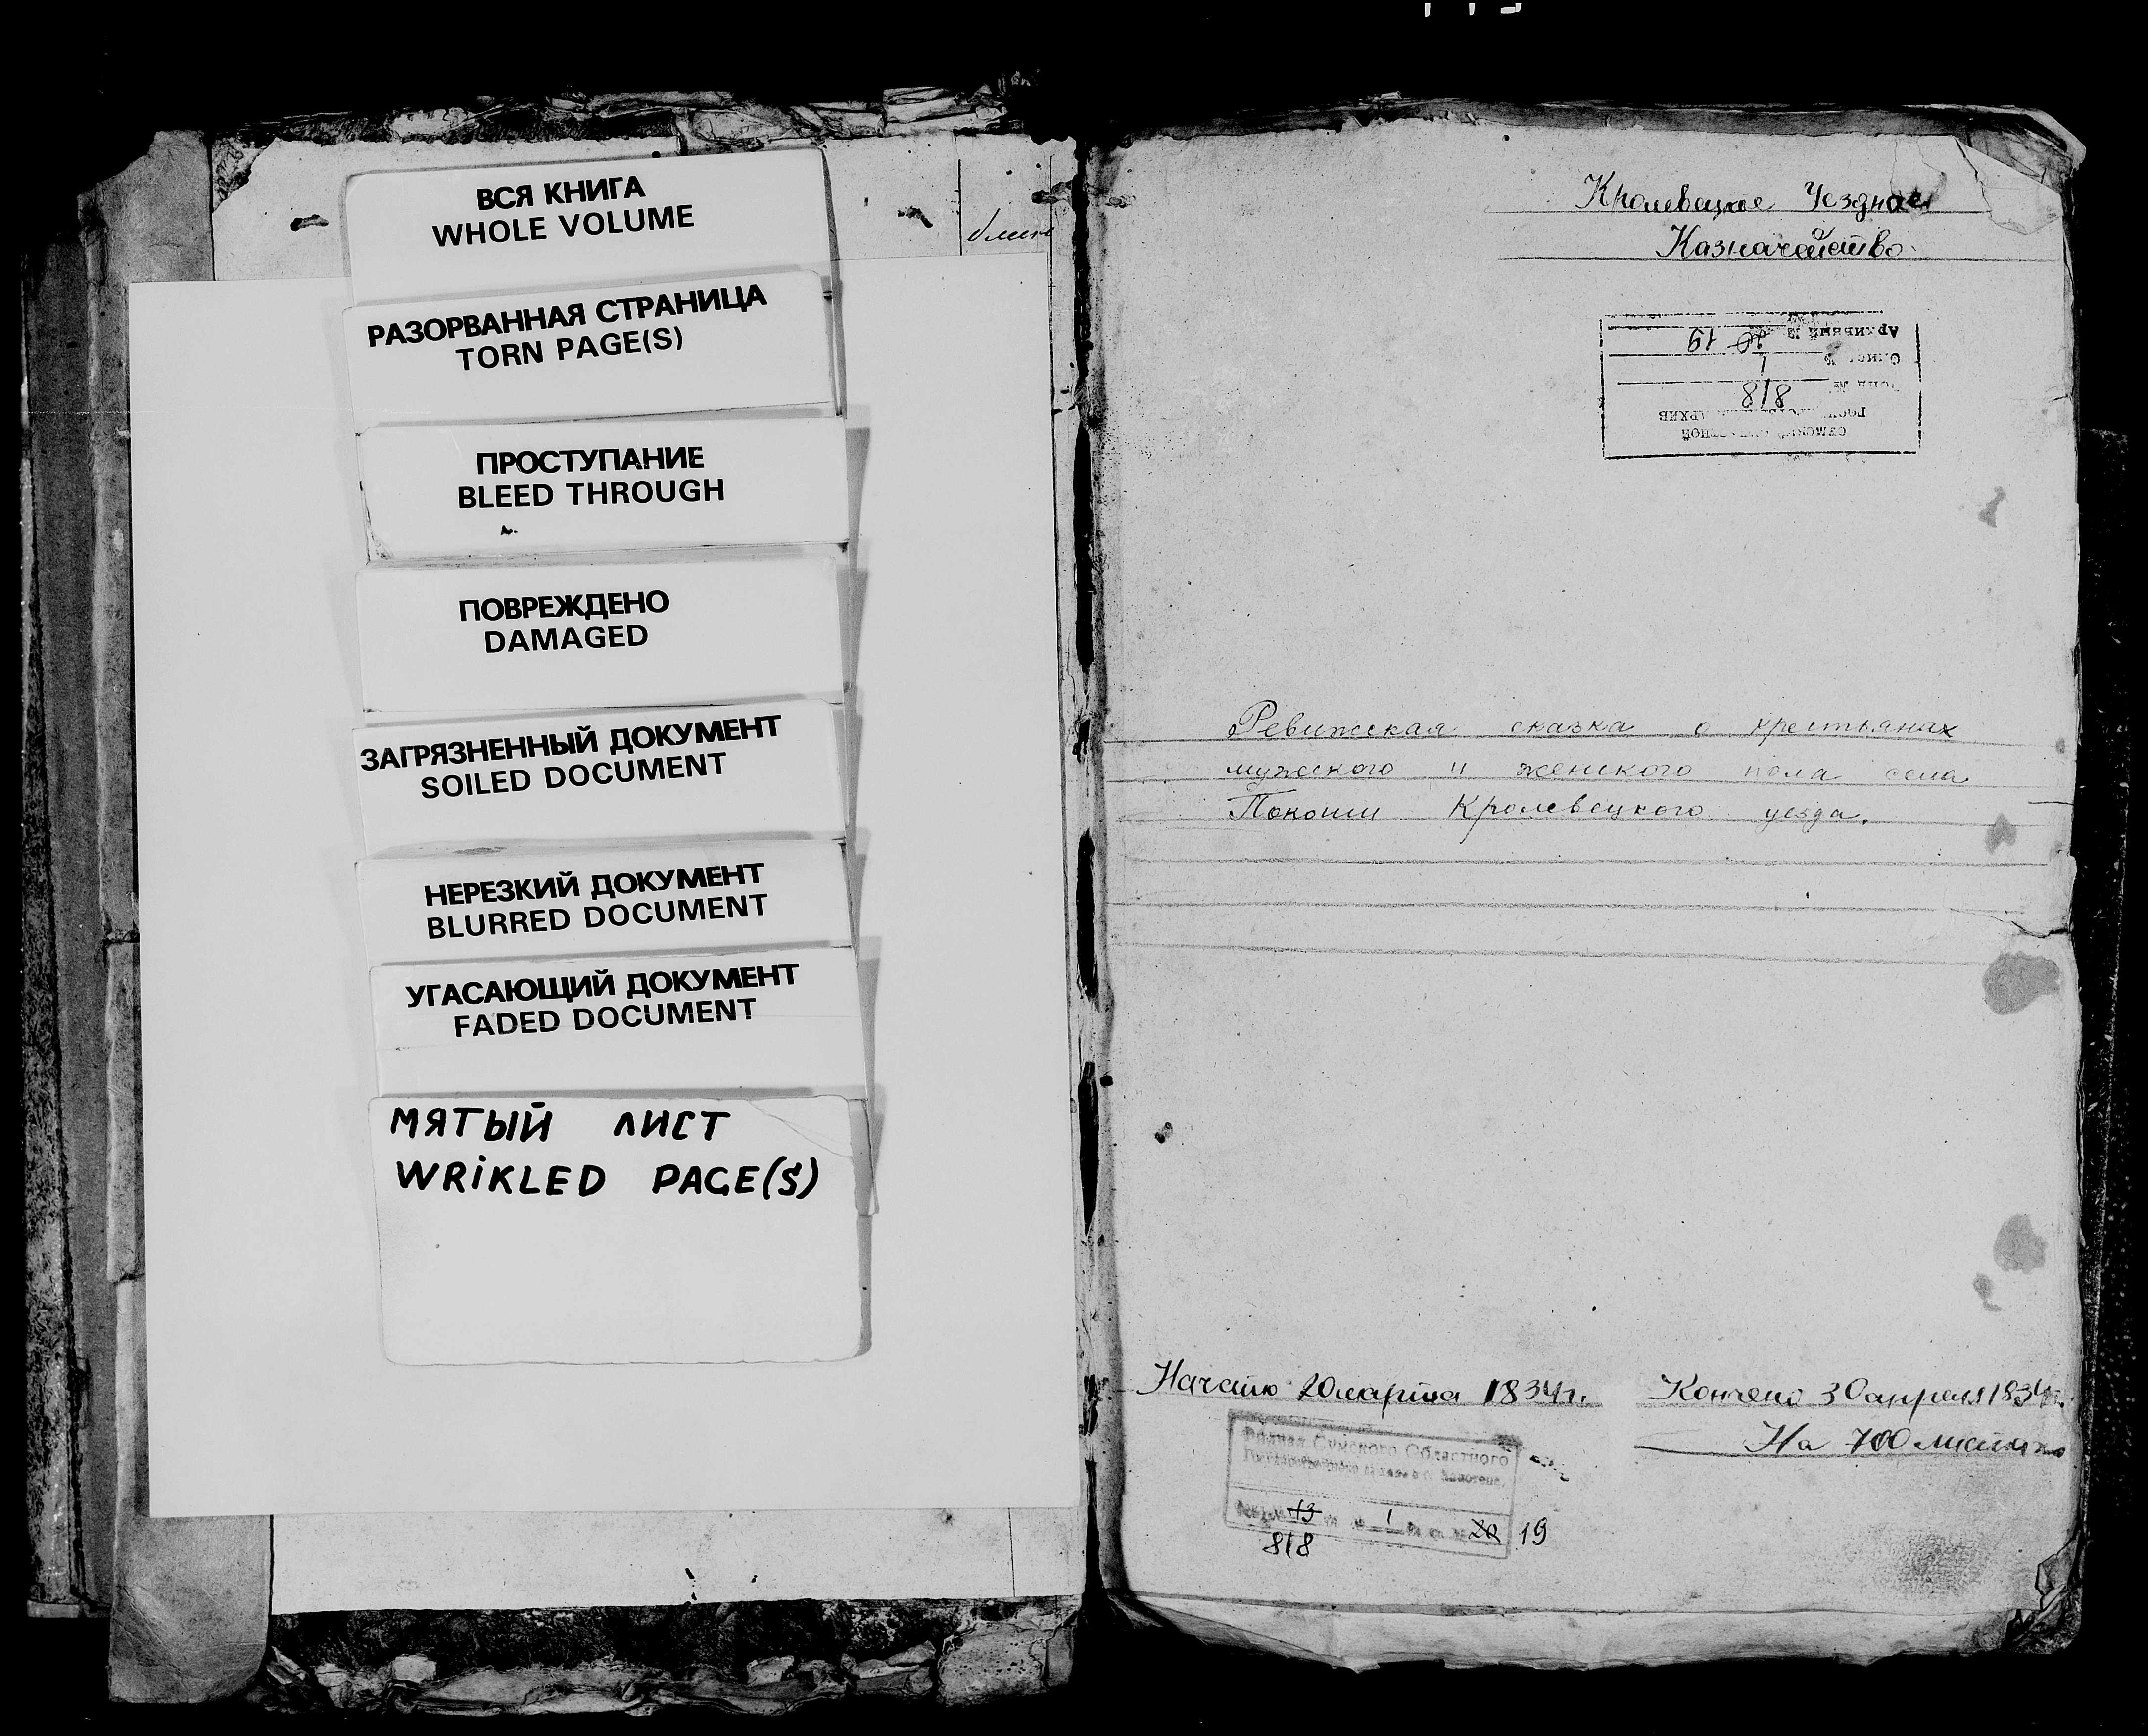 ВСЯ КНИГА
WHOLE VOLUME
РАЗОРВАННАЯ СТРАНИЦА
TORN PAGE(S)
ПРОСТУПАНИЕ
BLEED THROUGH
ПОВРЕЖДЕНО
DAMAGED
ЗАГРЯЗНЕННЫЙ ДОКУМЕНТ
SOILED DOCUMENT
НЕРЕЗКИЙ ДОКУМЕНТ
BLURRED DOCUMENT
УГАСАЮЩИЙ ДОКУМЕНТ
FADED DOCUMENT
МЯТЫЙ ЛИСТ
WRIKLED PAGE(S)
Кролевецкое Уездное
Казначейство
СУМСКИЙ ОБЛАСТНОЙ
АРХИВ
818
1
Архивный № 20 19
Ревижская сказка о крестьянах
мужского и женского пола села
Покошич Кролевецкого уезда.
Начато 20 марта 1834 г. Кончено 30 апреля 1834 г.
На 700 листах
Филиал Сумского Областного
Государственного архива в г.
13 1 20 19
818